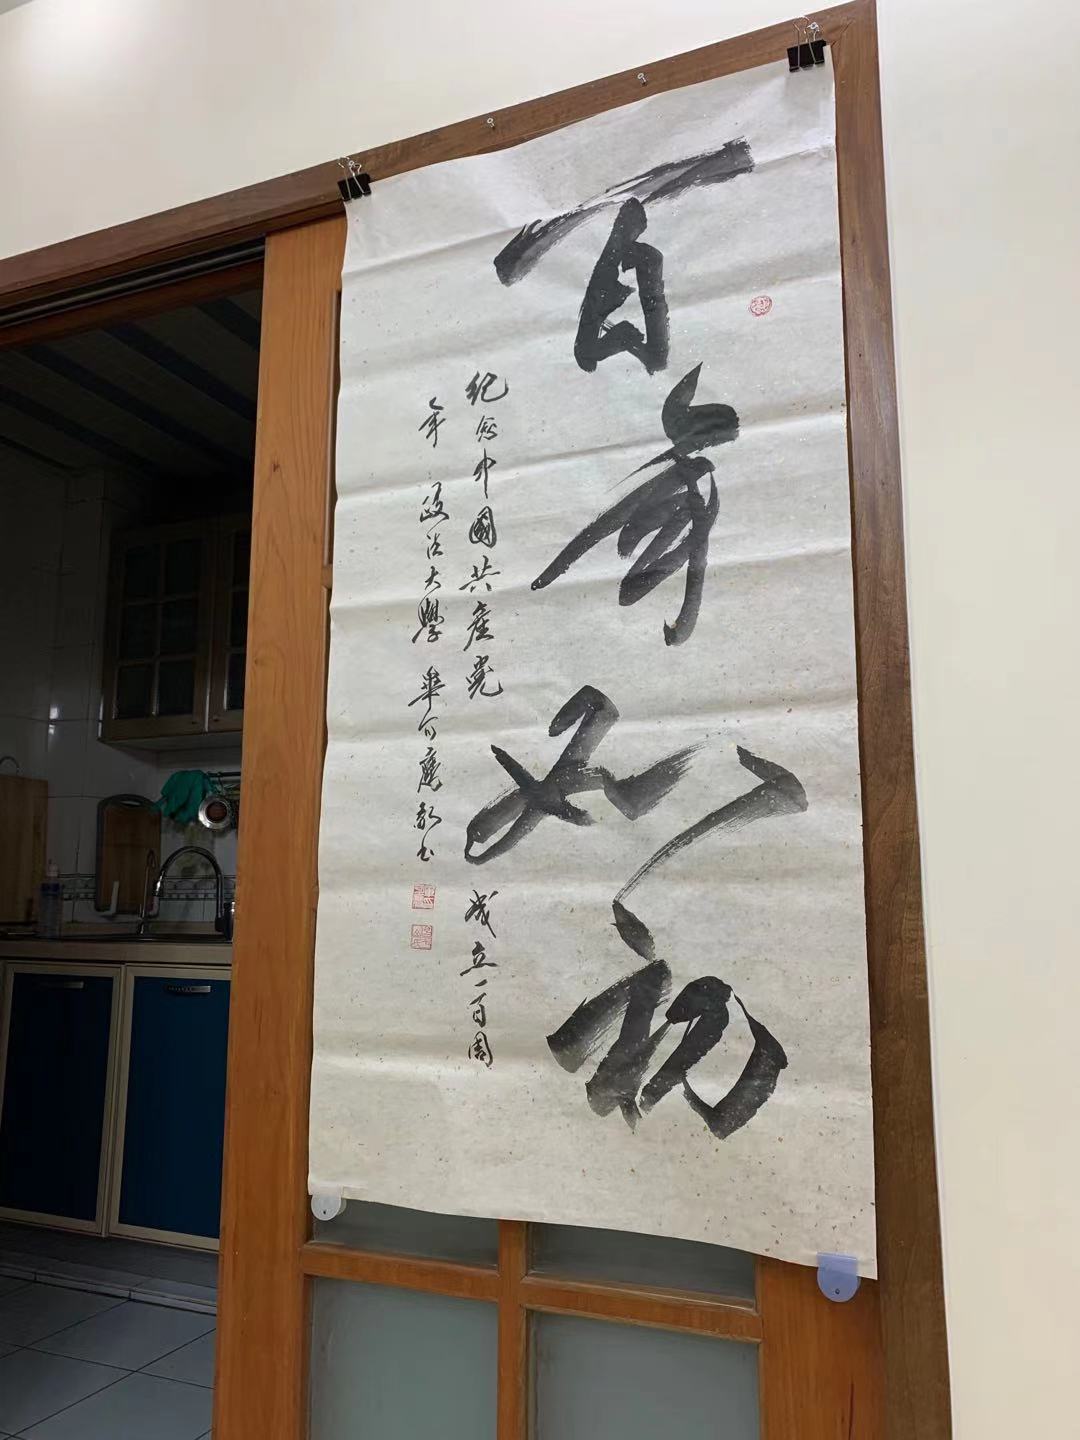 百年如初
纪念中国共产党成立一百周
年 政法大學 毕可鹰敬书